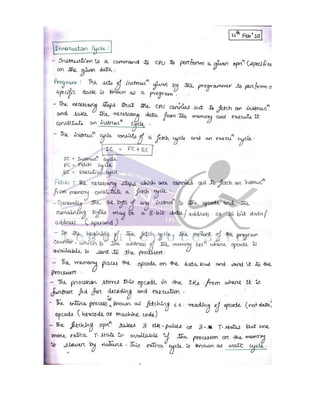 11th Feb'10
Instruction Cycle :
- Instruction is a command to CPU to perform a given opn (specified
on the given data.
Program : The sets of instrucn given by the programmer to perform a
specific task is known as a program.
- The necessary steps that the CPU carries out to fetch an instrucn
and take the necessary data from the memory and execute it
constitute an instrucn cycle.
- The instrucn cycle consists of a fetch cycle and an execun cycle.
IC = FC + EC
IC = Instrucn Cycle
FC = Fetch Cycle
EC = Execution Cycle
Fetch : The necessary steps which are carried out to fetch an instrucn
from memory constitute a fetch cycle.
- Generally the 1st byte of any instrucn is the opcode and the
remaining bytes may be a 8-bit data/ address or 16 bit data/
address (operand)
- In the beginning of the fetch cycle, the content of the program
counter, which is the address of the memory locn where opcode is
available is sent to the processor.
- The memory places the opcode on the data bus and send it to the
processor.
- The processor stores this opcode in the IR from where it is
further for decoding and execution.
- The entire process, known as fetching i.e. reading of opcode (not data)
opcode (hexcode or machine code)
- The fetching opn takes 3 clk-pulses or 3- T-states but one
more extra T-state is available if the processor or the memory
is slower by nature. This extra cycle is known as wait cycle.